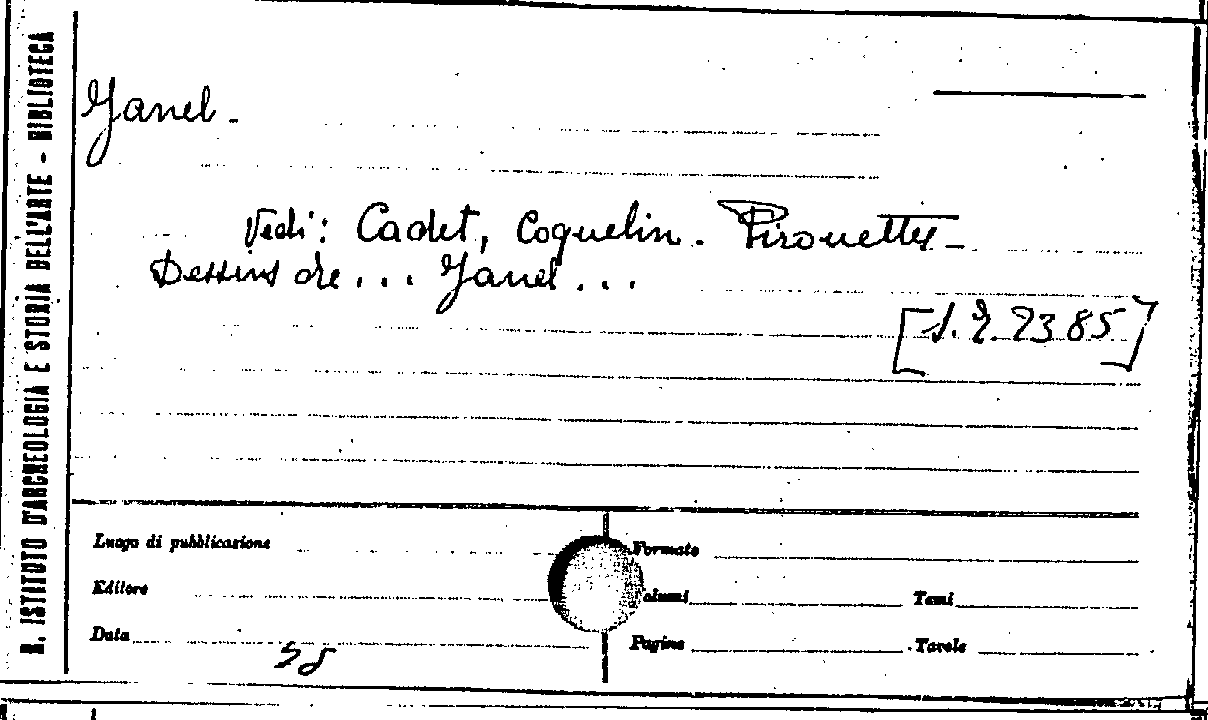 R. ISTITUTO D'ARCHEOLOGIA E STORIA DELL'ARTE - BIBLIOTECA
Janel -
Vedi: Cadet, Coquelin. Pirouettes -
Dessins de ... Janel ...
[S. 2. 2385]
Luogo di pubblicazione
Editore
Data
Formato
Volumi
Tomi
Pagine
Tavole